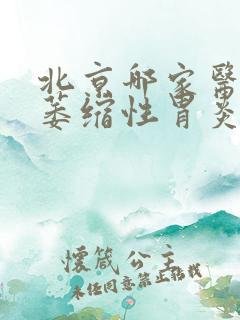 北京邪家醫
萎缩性胃炎
懷箴公主
未经同意禁止转载